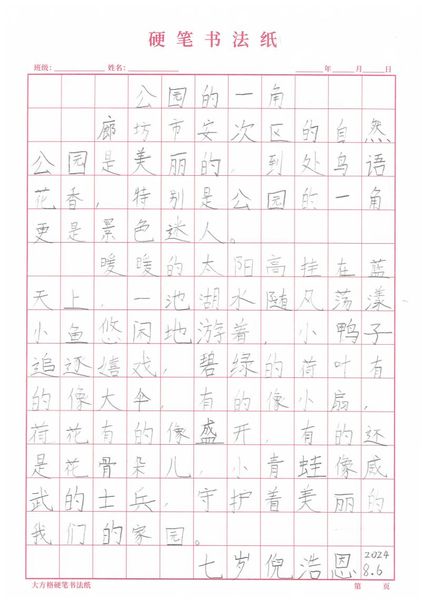 硬笔书法纸
班级: 姓名: 年 月 日
公园的一角
廊坊市安次区的自然
公园是美丽的,到处鸟语
花香,特别是公园的一角
更是景色迷人。
暖暖的太阳高挂在蓝
天上,一池湖水随风荡漾
小鱼悠闲地游着,小鸭子
追还嬉戏,碧绿的荷叶有
的像大伞,有的像小扇,
荷花有的像盛开,有的还
是花骨朵儿,小青蛙像威
武的士兵,守护着美丽的
我们的家园。
七岁倪浩恩 2024 8.6
大方格硬笔书法纸 第 页